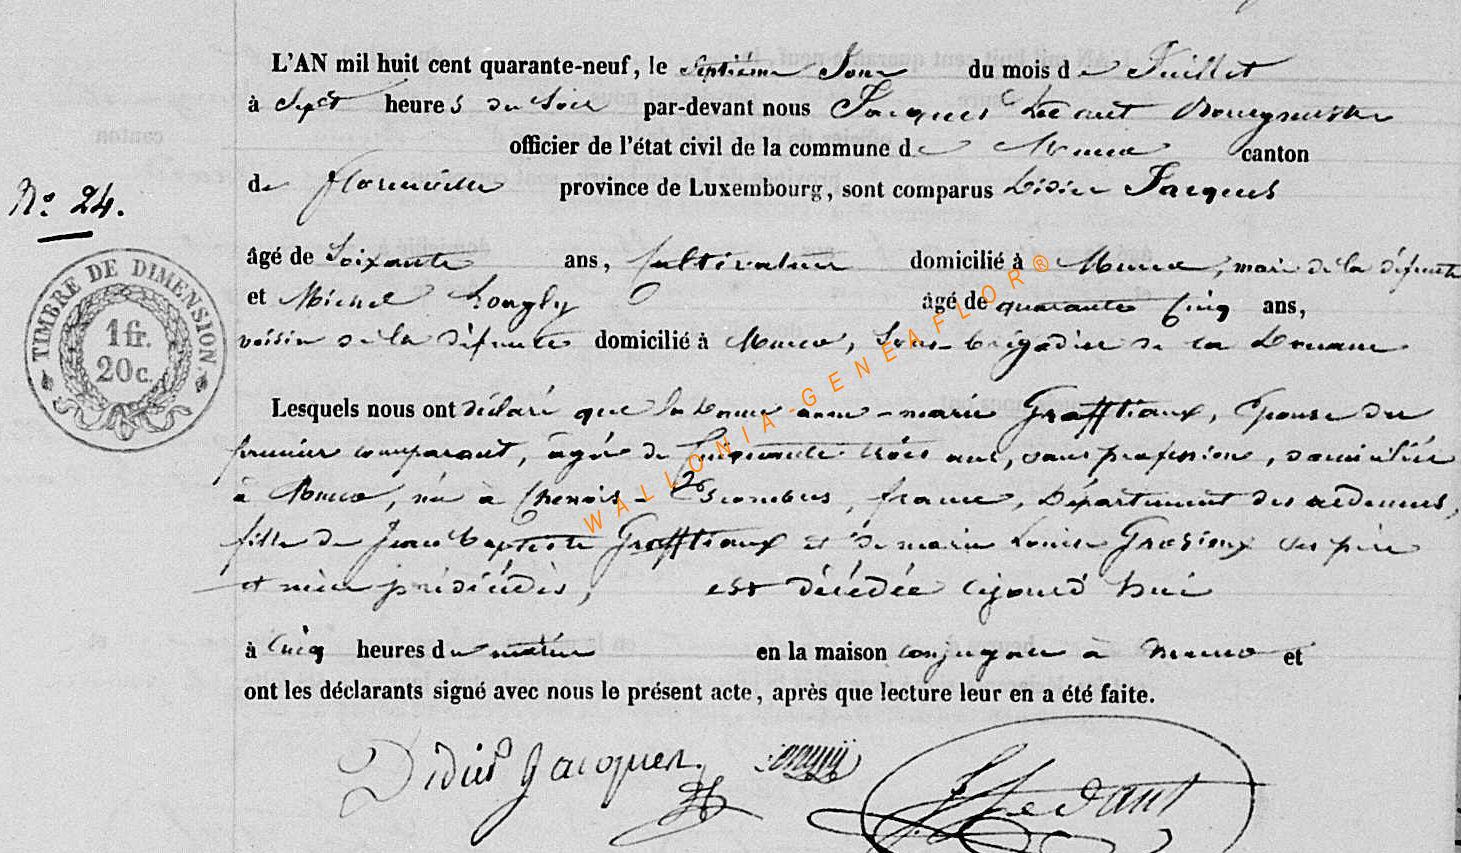 L'AN mil huit cent quarante-neuf, le Septième Jour du mois de Juillet
à Sept heures du Soir par-devant nous Jacques Ledant Bourgmestre
officier de l'état civil de la commune de Muno canton
de florenville province de Luxembourg, sont comparus Didier Jacques
N° 24.
âgé de Soixante ans, Cultivateur domicilié à Muno, mari de la défunte
et Michel âgé de quarante Cinq ans,
voisin de la défunte domicilié à Muno, Sous-brigadier de la Douane
TIMBRE DE DIMENSION
1 fr.
20 c.
Lesquels nous ont déclaré que la Dame anne-marie Grafftiaux, Epouse du
premier comparant, âgée de Cinquante trois ans, sans profession, domiciliée
à Muno, née à Chenois - Escombres, france, Département des ardennes,
fille de Jean Baptiste Grafftiaux et de marie Louise ses père
et mère prédécédés, est décédée aujourd'hui
à Cinq heures du matin en la maison conjugale à Muno et
ont les déclarants signé avec nous le présent acte, après que lecture leur en a été faite.
Didier Jacques JLedant
WALLONIA-GENEAFLOR®